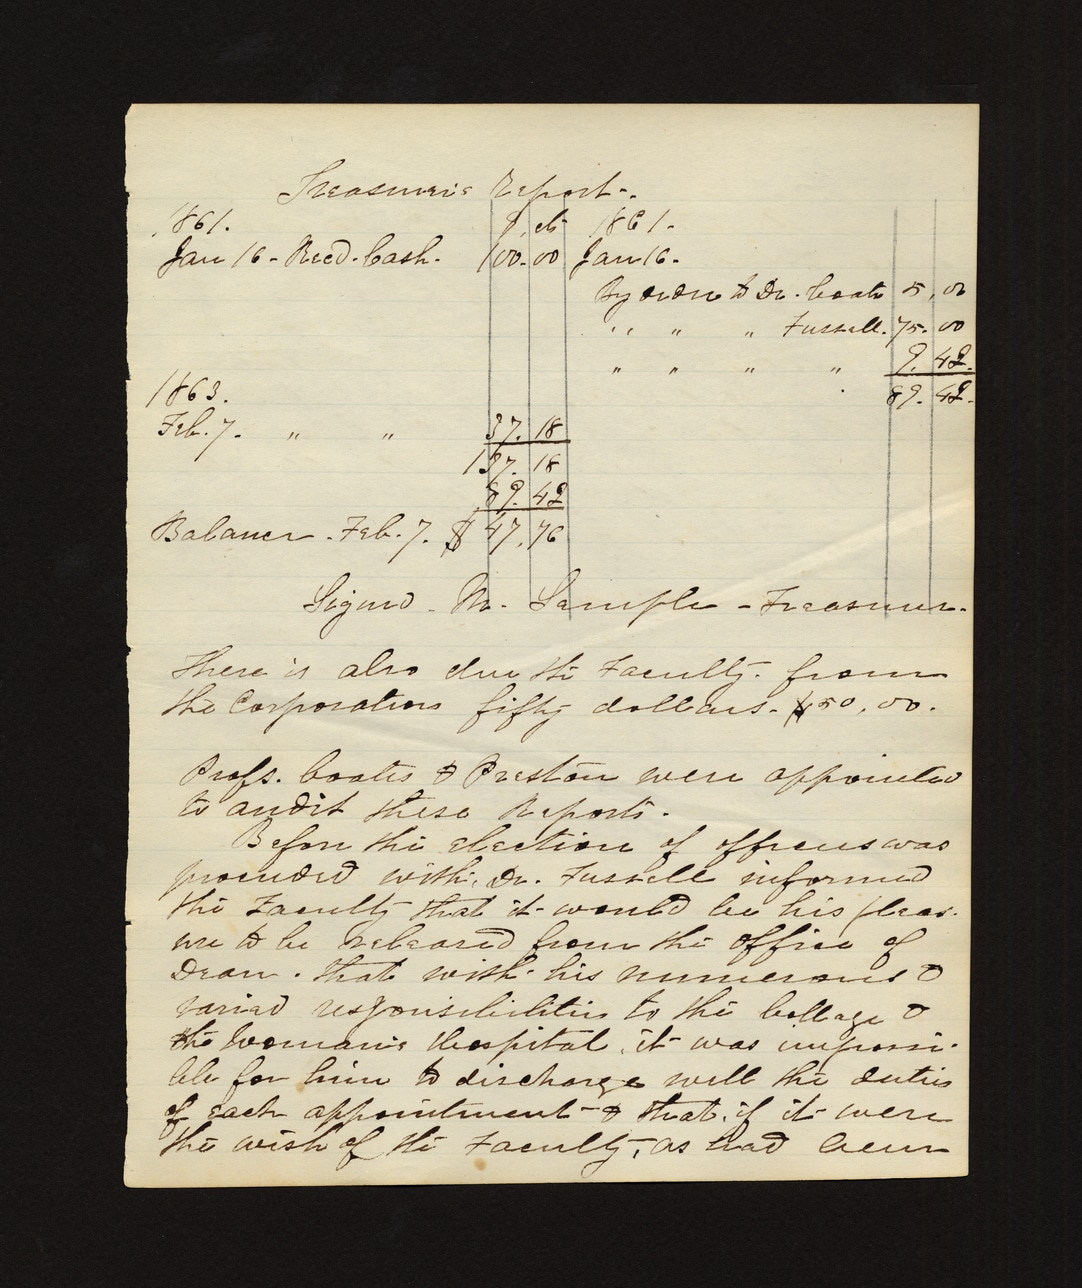 Treasurer's Report.
1861. $ cts 1861.
Jan 16 - Recd. Cash. 100.00 Jan 16.
By order to Dr. Coates 5.00
" " " Fussell. 75.00
" " " " 9.42.
1863. 89.42.
Feb. 7. " " 37.18
137.18
89.42
Balance. Feb. 7. $47.76
Signed - M. Sample - Treasurer.
There is also due the Faculty from
the Corporators fifty dollars. $50.00.
Profs. Coates & Preston were appointed
to audit these Reports.
Before the election of officers was
proceeded with, Dr. Fussell informed
the Faculty that it would be his pleas-
ure to be released from the office of
Dean. that with his numerous &
varied responsibilities to the College &
the Woman's Hospital, it was impossi-
ble for him to discharge well the duties
of each appointment - & that, if it were
the wish of the Faculty, as had been